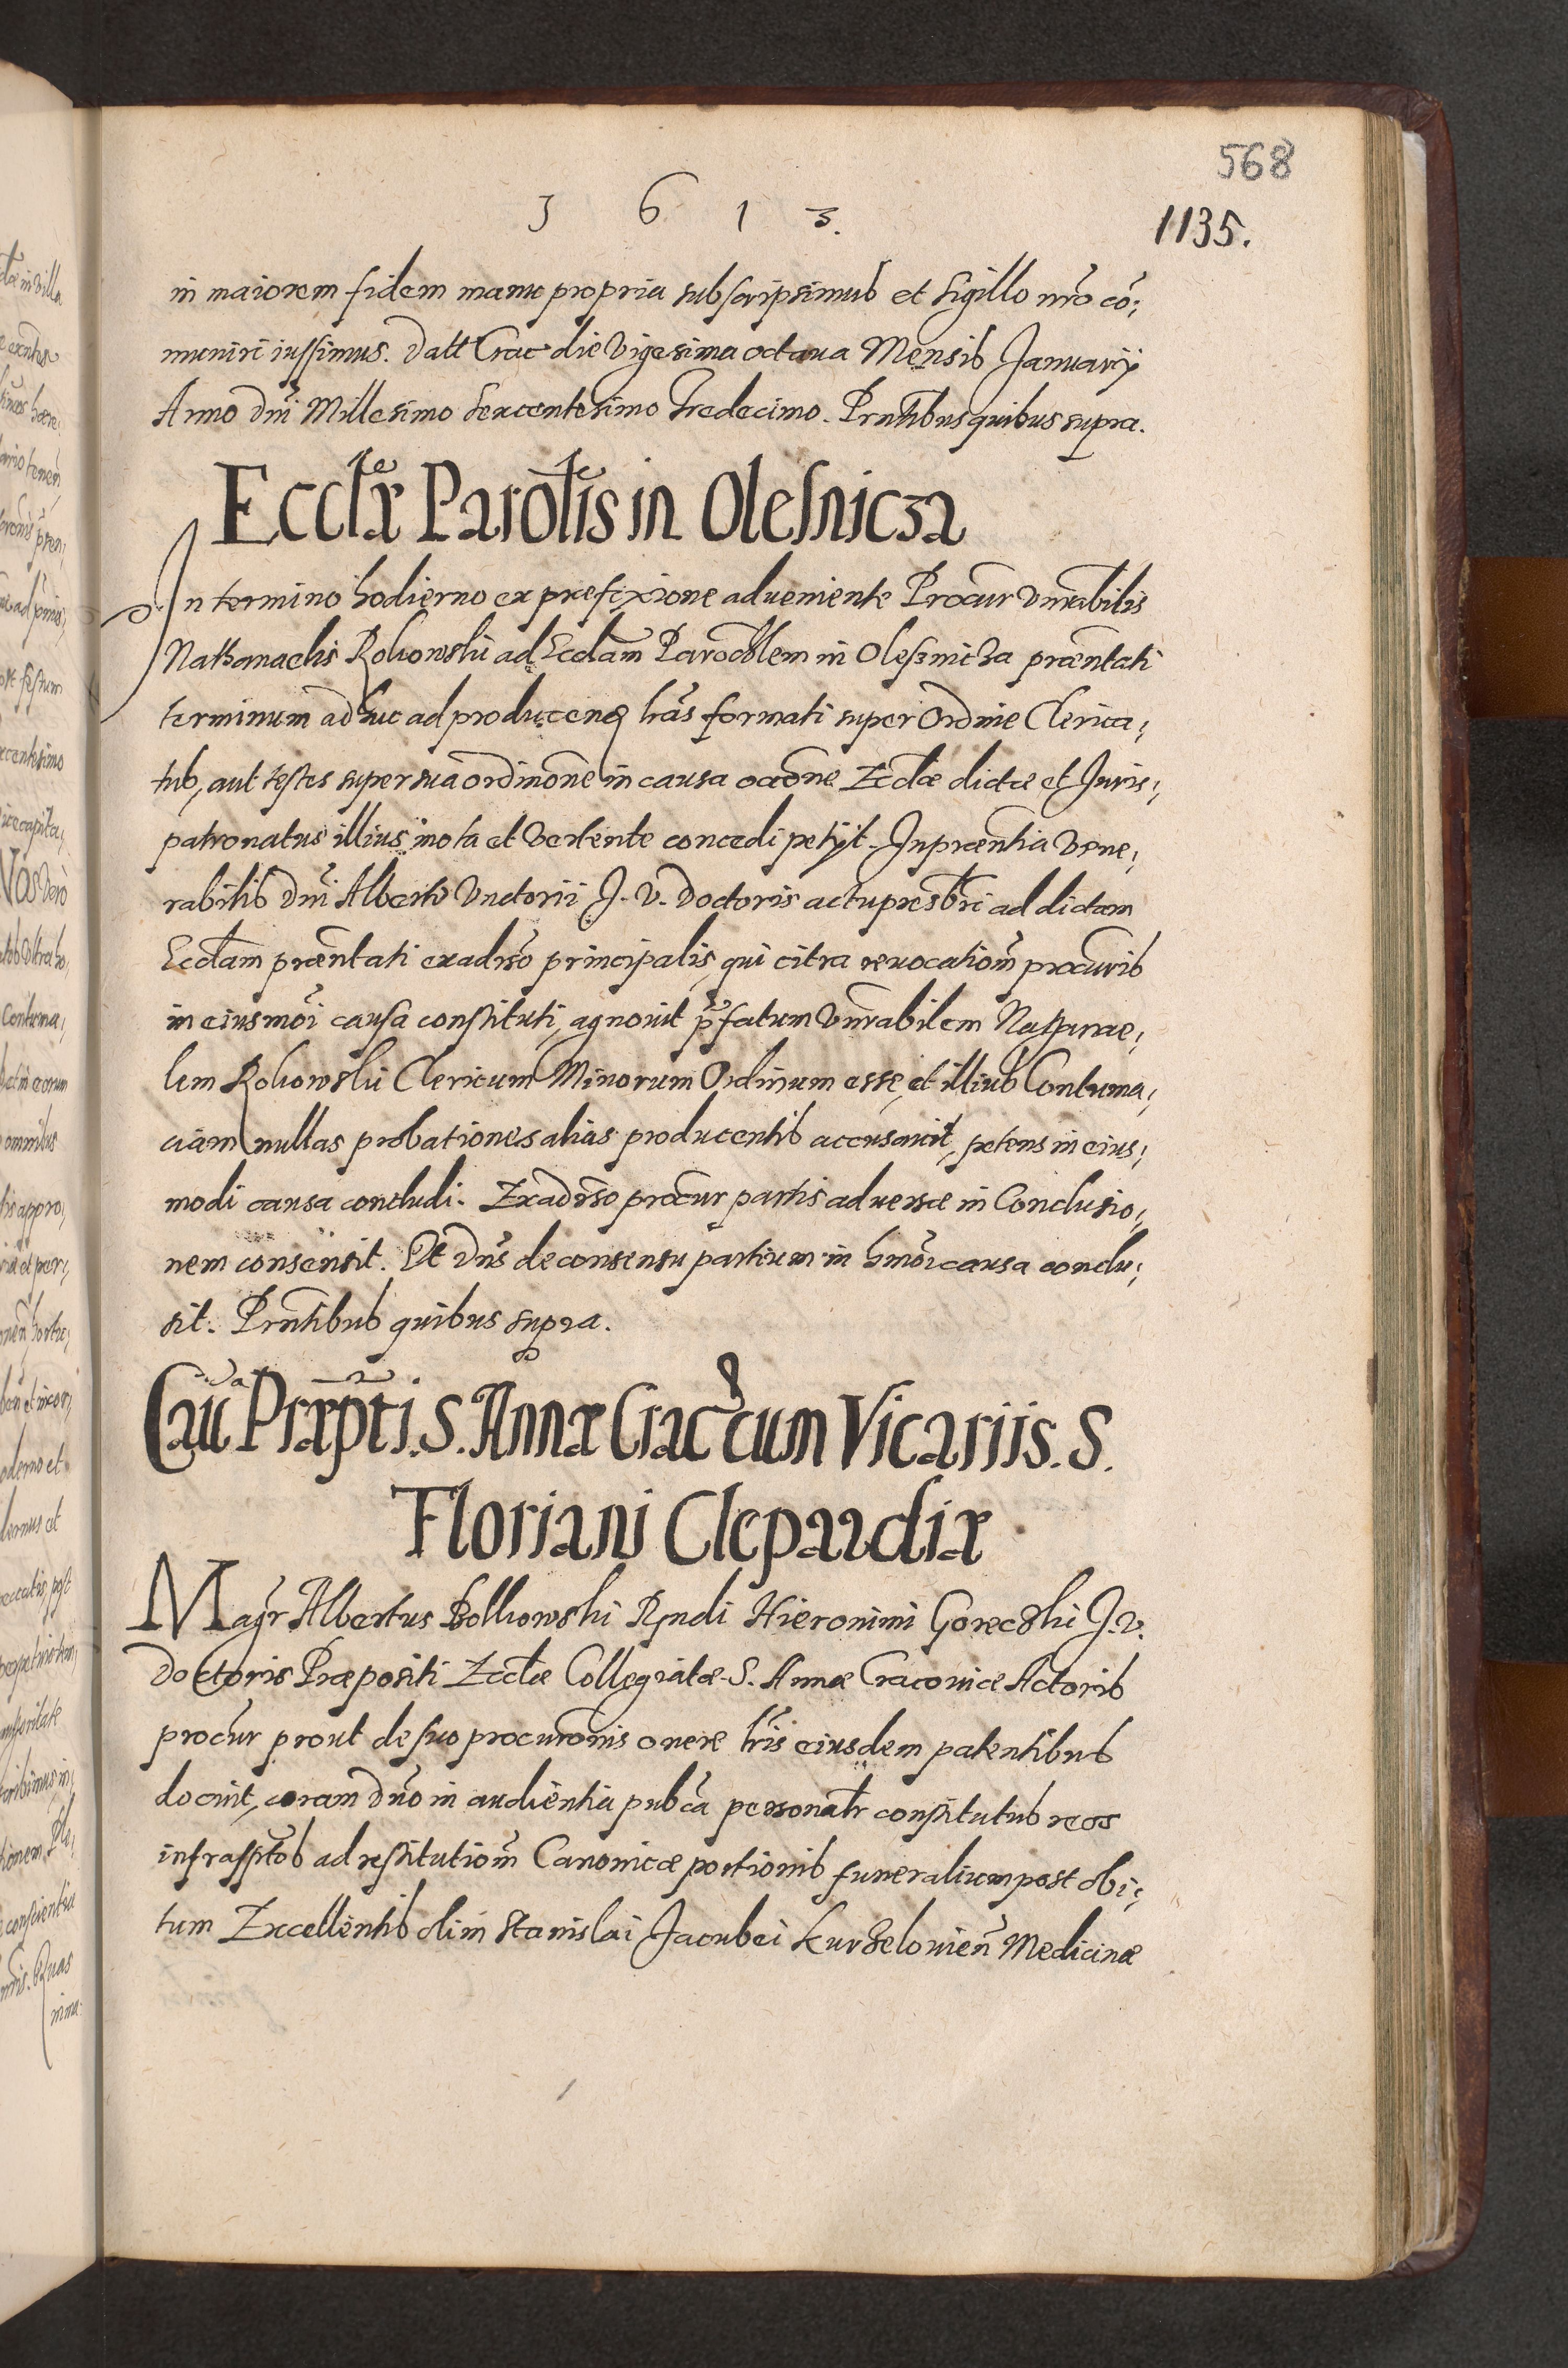 568
1 6 1 3.
1135.
in maiorem fidem manu propria subscripsimus et Sigillo nr̃o cõ;
muniri iussimus. Datt Crac die Vigesima octaua Mensis Januarij
Anno dnĩ Millesimo Sexcentesimo Tredecimo. Prñtibus quibus supra.
Eccl̃æ Parol̃is in Olesnicza
In termino hodierno ex prefixione adueniente Procur Vnr̃abilis
Nathanaelis Rokowski ad Eccl̃am Parocħlem in Olesznicza præntati
terminum adhuc ad producenđ lr̃as formati super Ordine Clerica;
tus, aut testes super sua ordinõne in causa oc̃one Eccl̃æ dictæ et Juris;
patronatus illius mota et vertente concedi petijt. In præntia Vene;
rabilis Dnĩ Alberti Unctorii J. V. Doctoris actu presbr̃i ad dictam
Eccl̃am præntati ex aduso principalis, qui citra reuocatioñ procuris
in eiusmõi causa constituti, agnouit p̃fatum Vnr̃abilem Nathanae;
lem Rokowski Clericum Minorum Ordinum esse, et illius Contuma;
ciam nullas probationes alias producentis accusauit, petens in eius;
modi causa concludi. Ex aduso procur partis aduersæ in Conclusio;
nem consensit. Et Dns̃ de consensu partium in hmõi causa conclu;
sit. Prñtibus quibus supra.
Cau͂a Præpti. S. Annæ Crac cum Vicariis. S.
Floriani Clepardiæ
Magr̃ Albertus Bolkowski Rndi Hieronimi Goreczki J. V.
Doctoris Præpositi Eccl̃æ Collegiatæ S. Annæ Cracouiæ Actoris
procur̃ prout de suo procurõnis onere lr̃is eiusdem patentibus
docuit, coram Dnõ in audientia pubc̃a personalr̃ constitutus reos
infrasptõs ad restitutioñ Canonicæ portionis funeralium post obi;
tum Excellentis olim Stanislai Jacobei Kurzelouien̄ Medicinæ